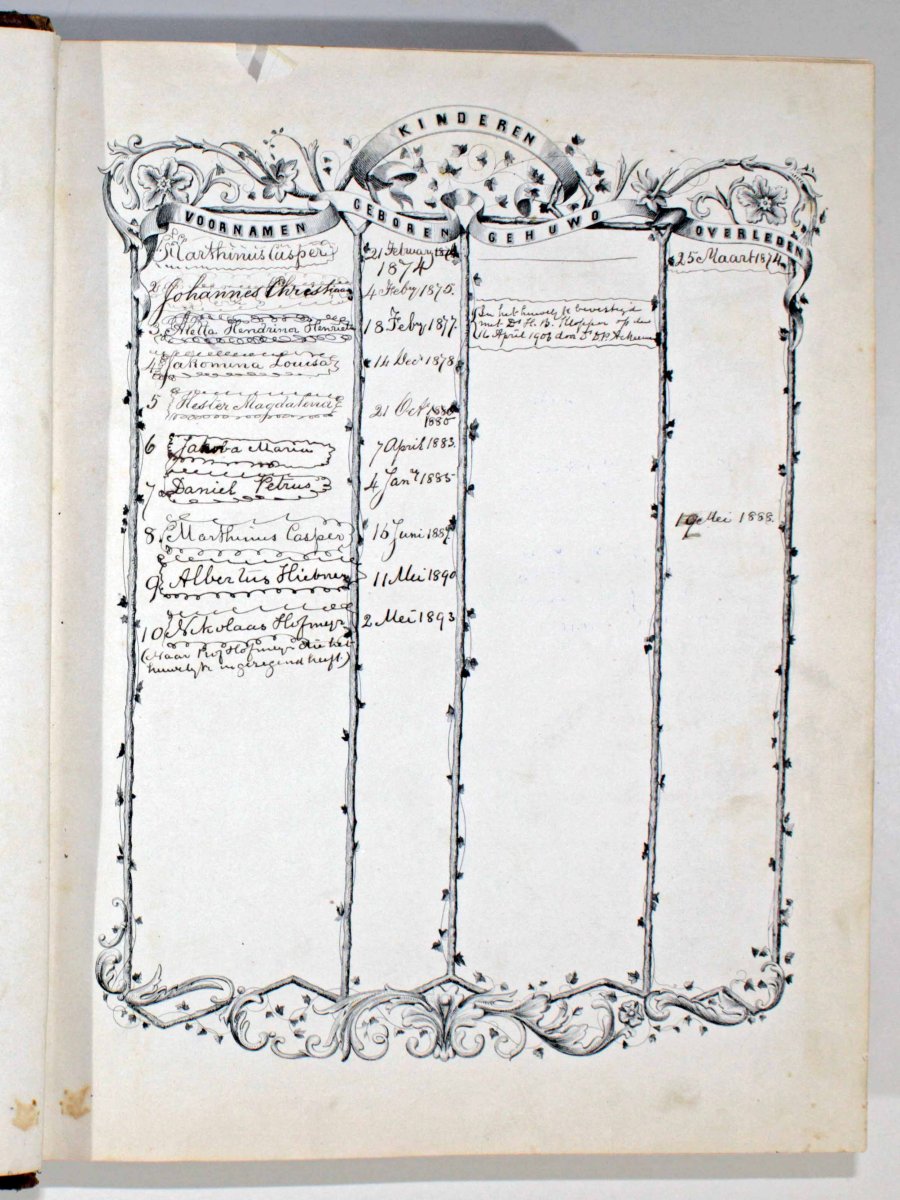 KINDEREN
VOORNAMEN GEBOREN GEHUWD OVERLEDEN
1 Marthinus Casper 21 Februarij 1874 25 Maart 1874
1874
2 Johannes Christiaan 4 Feby 1875.
3 Aletta Hendrina Henrietta 18 Feby 1877. In het huwelijk bevestigd
met Ds H. B. Klopper op de
16 April 1906 door Ds D. P. Ackerman
4 Jakomina Louisa 14 Decr 1878
5 Hester Magdalena 21 Octr 1880
1880
6 Jakoba Maria 7 April 1883.
7 Daniel Petrus 4 Jany 1885
19 Mei 1888.
8 Marthinus Casper 16 Juni 1887
9 Albertus Hiebner 11 Mei 1890
10 Nikolaas Hofmeyr 2 Mei 1893
(Naar Prof Hofmeyr die het
huwelijk ingezegend heeft.)